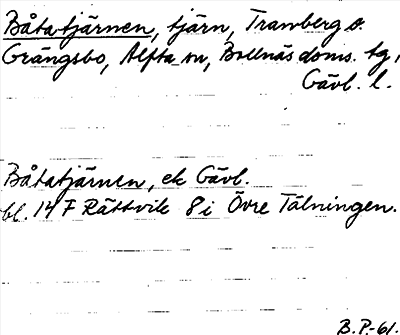 Båtatjärnen, tjärn, Tramberg o.
Grängsbo, Alfta sn, Bollnäs doms. tg,
Gävl. l.
Båtatjärnen, ek Gävl.
bl. 14 F Rättvik 8 i Övre Tälningen.
B.P.-61.